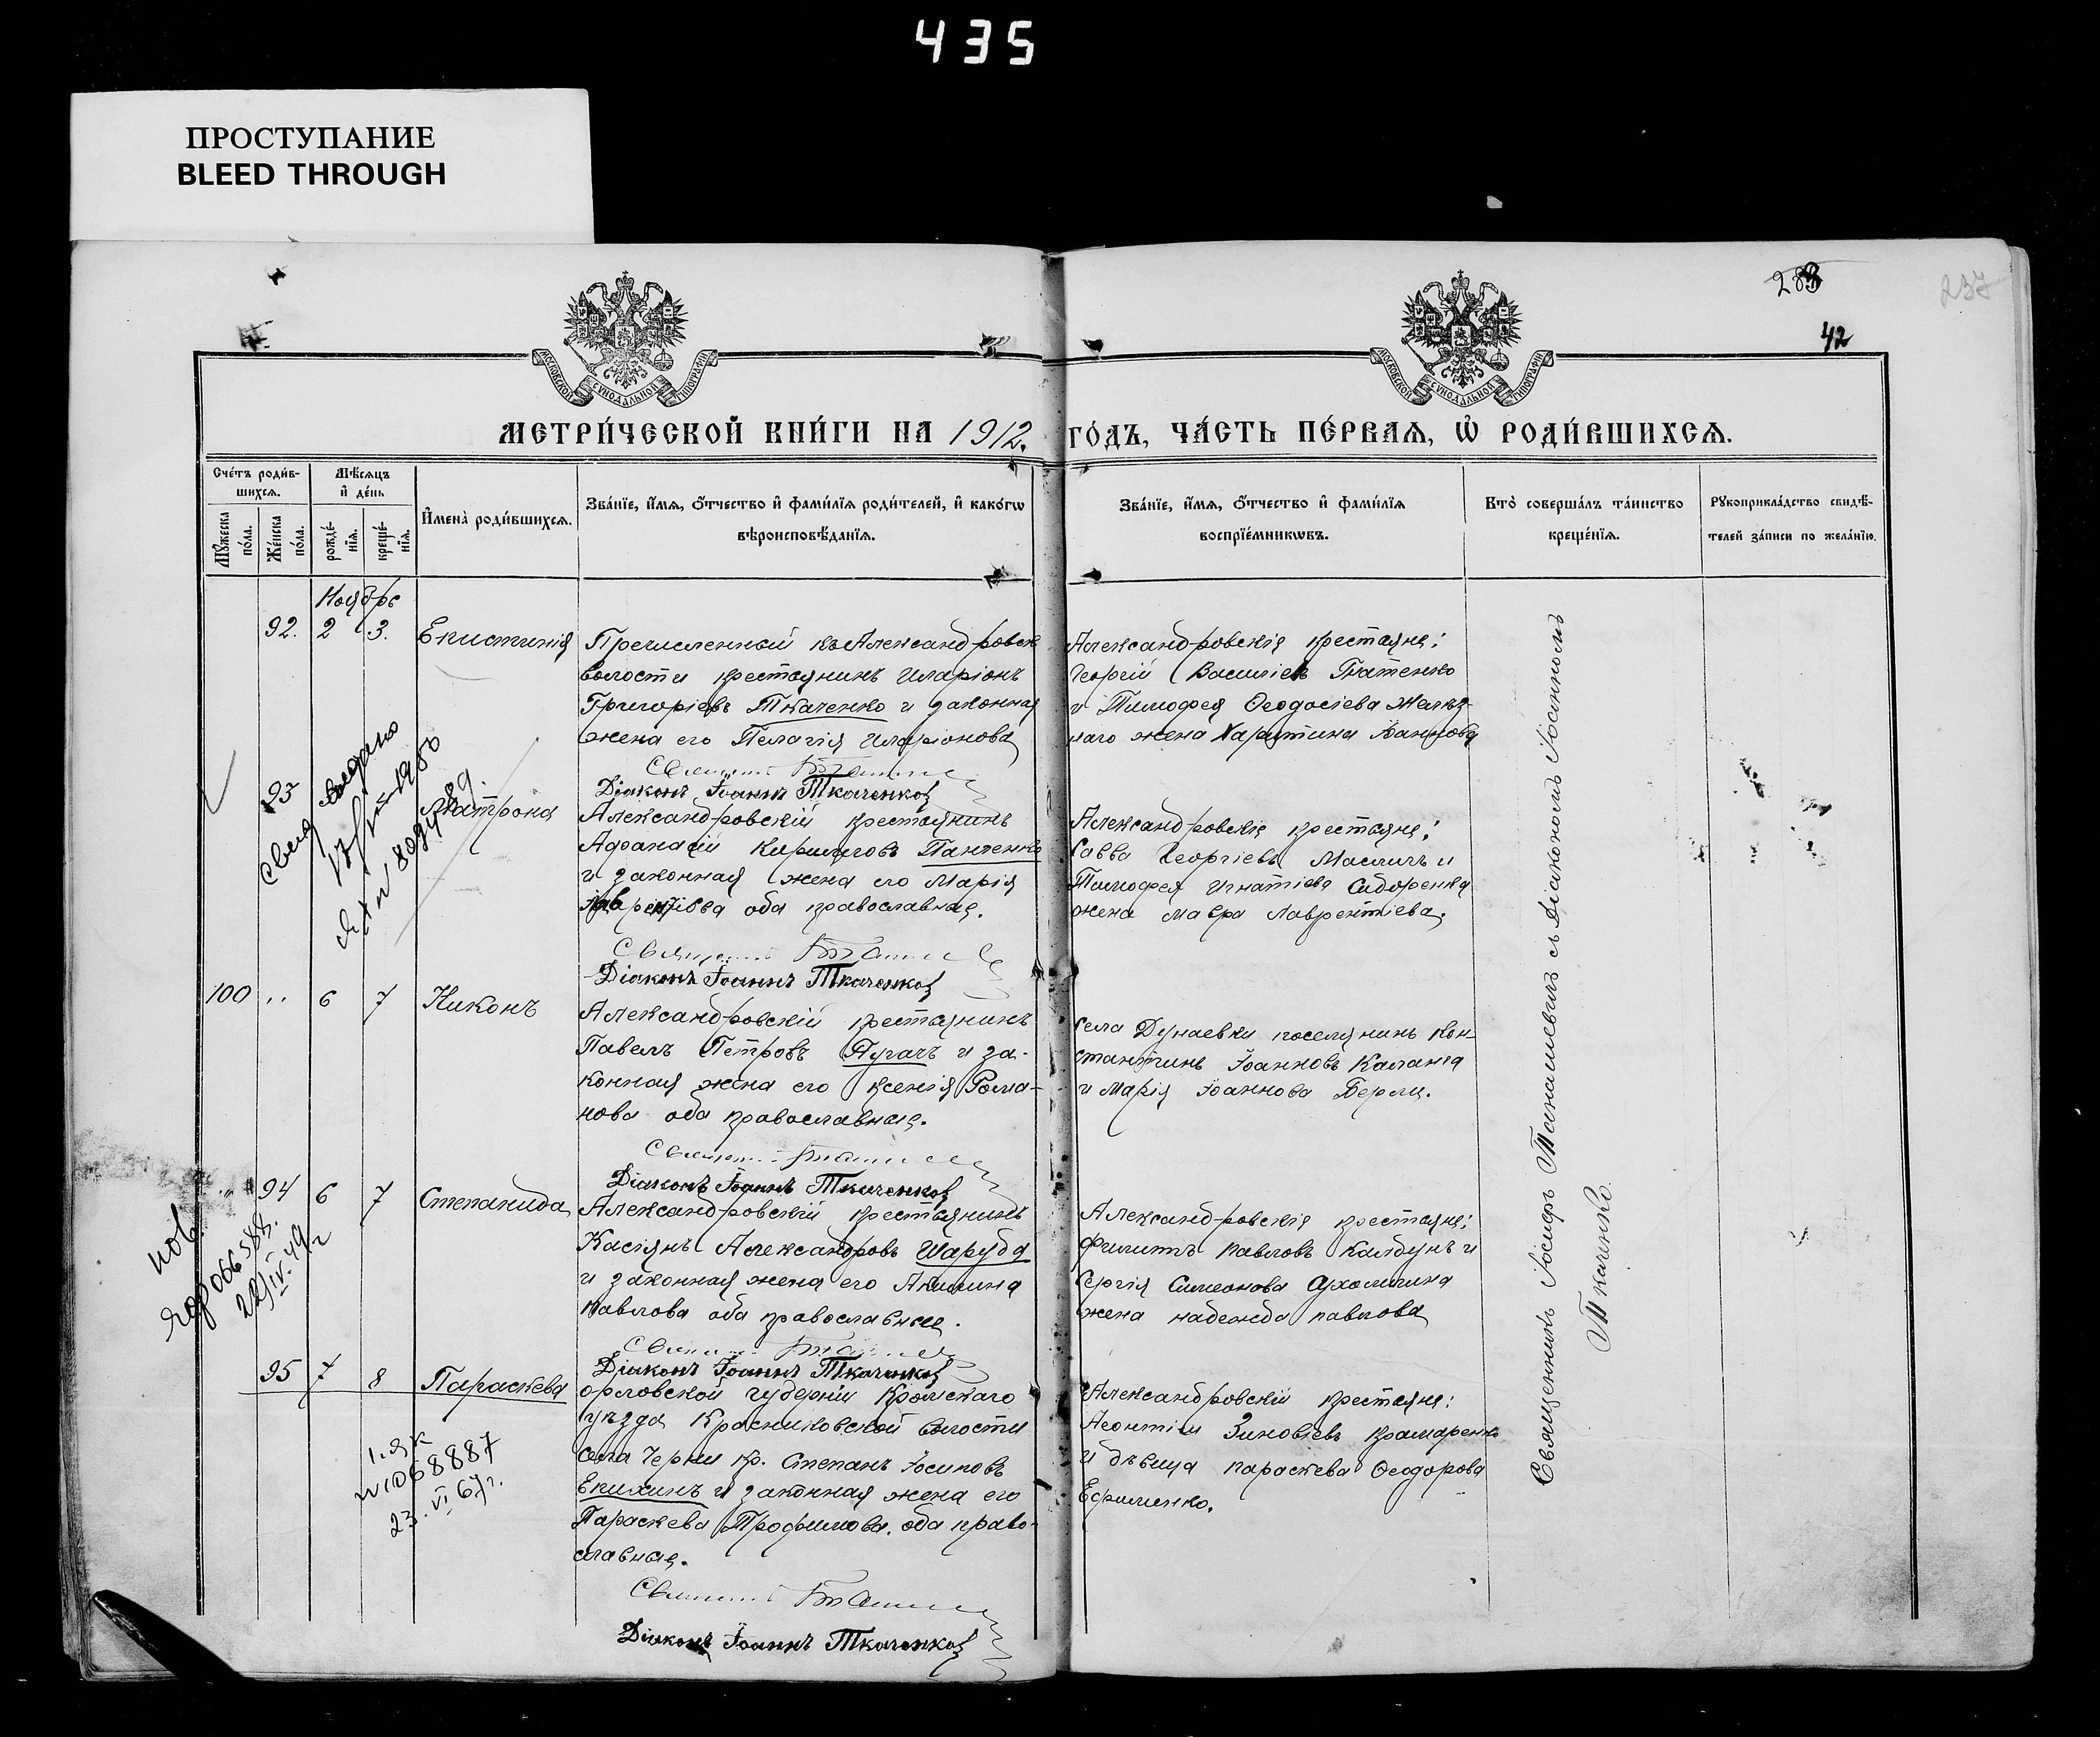 435
ПРОСТУПАНИЕ
BLEED THROUGH
283
237
42
МОСКОВСКОЙ СУНОДАЛЬНОЙ ТИПОГРАФІИ
МОСКОВСКОЙ СУНОДАЛЬНОЙ ТИПОГРАФІИ
МЕТРИ́ЧЕСКОЙ КНИ́ГИ НА 1912. ГО́ДЪ, ЧА́СТЬ ПЕ́РВАЯ, Ѡ҆ РОДИ́ВШИХСЯ.
Сче́тъ роди́в-
шихся.
Мꙋ́жеска по́ла.
Же́нска по́ла.
Мѣ́сяцъ и҆ де́нь
рожде́-
нїя.
креще́-
нїя.
И҆мена̀ роди́вшихся.
Зва́нїе, и҆́мя, ѻ҆́тчество и҆ фами́лїя роди́телей, и҆ како́гѡ
вѣроисповѣ́данїя.
Зва́нїе, и҆́мя, ѻ҆́тчество и҆ фами́лїя
воспрїе́мникѡвъ.
Кто̀ соверша́лъ та́инство
креще́нїя.
Рꙋкоприкла́дство свидѣ́-
телей за́писи по жела́нїю.
Ноябрь
92. 2 3. Екистинія
Пречисленный къ Александровск
волости крестьянинъ Иларіонъ
Григоріевъ Ткаченко и законная
жена его Пелагія Иларіонова
Діаконъ Іоаннъ Ткаченко
Александровскіе крестьяне:
Георгій Василіевъ Гнатенко
и Тимофея Ѳеодосіева
наго жена Харитина Іоаннова
93 Матрона
Александровскій крестьянинъ
Афанасій Кирилловъ Панченко
и законная жена его Марія
оба православные.
Діаконъ Іоаннъ Ткаченко
Александровскіе крестьяне:
Савва Георгіевъ Масличъ и
Тимофея Игнатіева Сидоренка
жена Мавра Лаврентіева.
100 " 6 7 Никонъ
Александровскій крестьянинъ
Павелъ Петровъ Пугачъ и за-
конная жена его Ксенія Рома-
нова оба православные.
Діаконъ Іоаннъ Ткаченко
Села Дунаевки поселянинъ Кон-
стантинъ Іоанновъ Каланга
и Марія Іоаннова
" 94 6 7 Степанида
Александровскій крестьянинъ
Касіянъ Александровъ Шаруба
и законная жена его Акилина
Павлова оба православные.
Діаконъ Іоаннъ Ткаченко
Александровскіе крестьяне:
Филиппъ Павловъ Калдунъ и
Сергія Симеонова Сухомлина
жена Надежда Павлова
95 7 8 Параскева
Орловской губерніи Кромскаго
уѣзда Красниковской волости
села Черни кр. Степанъ Іосиповъ
Екихинъ и законная жена его
Параскева Трофимова. оба право-
славные.
Діаконъ Іоаннъ Ткаченко
Александровскій крестьяне:
Леонтій Зиновіевъ Крамаренко
и дѣвица Параскева Ѳеодорова
Ефименко.
068887
23.VI 67г.
22/IV.49г
Священникъ Іосифъ Танашевичъ съ Діакономъ Іоанномъ
Ткаченко.